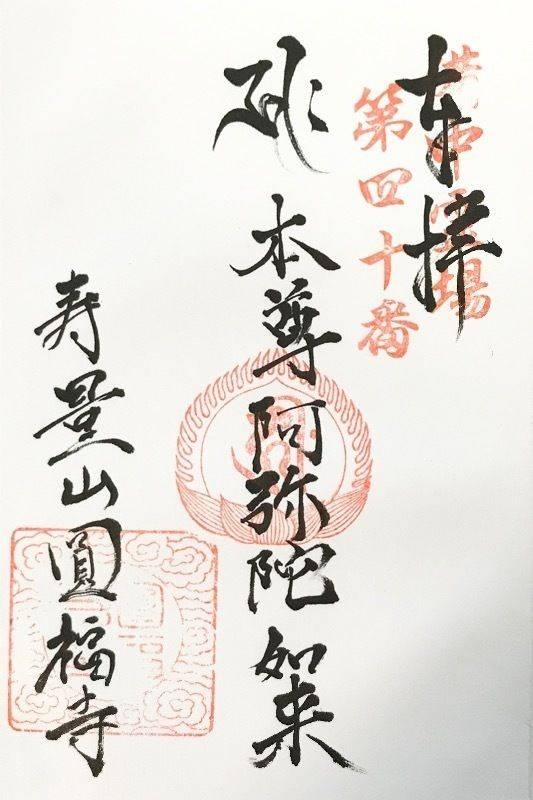 奉拝
霊場
第四十番
本尊阿弥陀如来
寿量山圓福寺